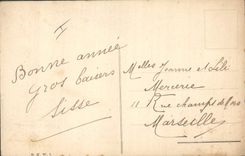 Bonne année
Gros baisers
Lisse
Melles Jeanne et Lili
Mercerie
11 Rue champs de Mars
Marseille